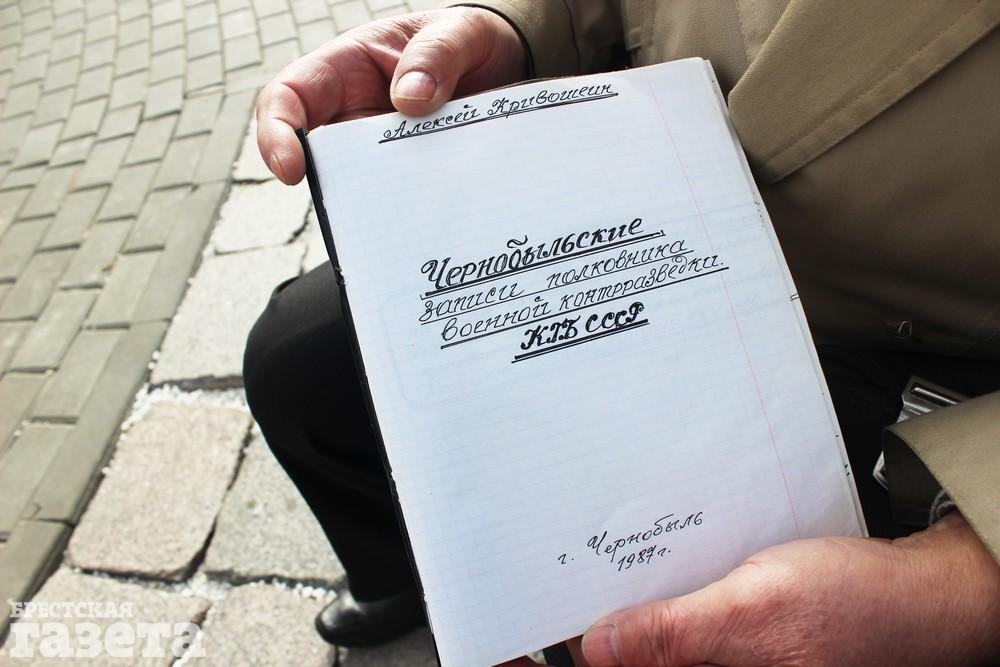 Алексей Кривошеин
Чернобыльские
записи полковника
военной контрразведки.
КГБ СССР
г. Чернобыль
1987г.
БРЕСТСКАЯ
газета